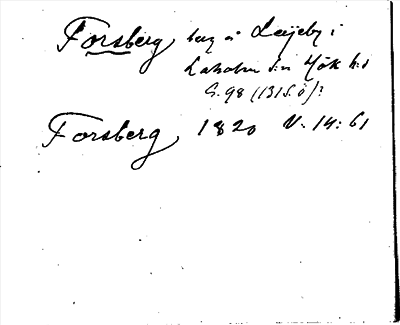 Forsberg bág å Leijeby i
Laholm s:n Hök h:d
G. 98 (1315.ö)?
Forsberg, 1820 V. 14: 61